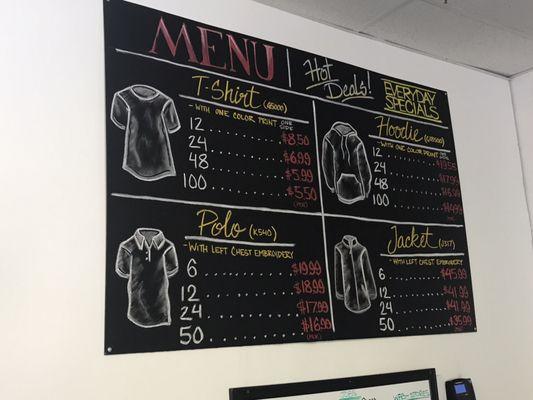 MENU
Hot Deals!
EVERYDAY SPECIALS
T-Shirt (G5000)
-WITH ONE COLOR PRINT ONE SIDE
12 .......... $8.50
24 .......... $6.99
48 .......... $5.99
100 .......... $5.50
Hoodie
-WITH ONE COLOR PRINT
12 .......... $19.55
24 .......... $17.99
48
100
Polo (K540)
-WITH LEFT CHEST EMBROIDERY
6 .......... $19.99
12 .......... $18.99
24 .......... $17.99
50 .......... $16.99
Jacket (J317)
-WITH LEFT CHEST EMBROIDERY
6 .......... $45.99
12 .......... $43.99
24 .......... $41.99
50 .......... $39.99